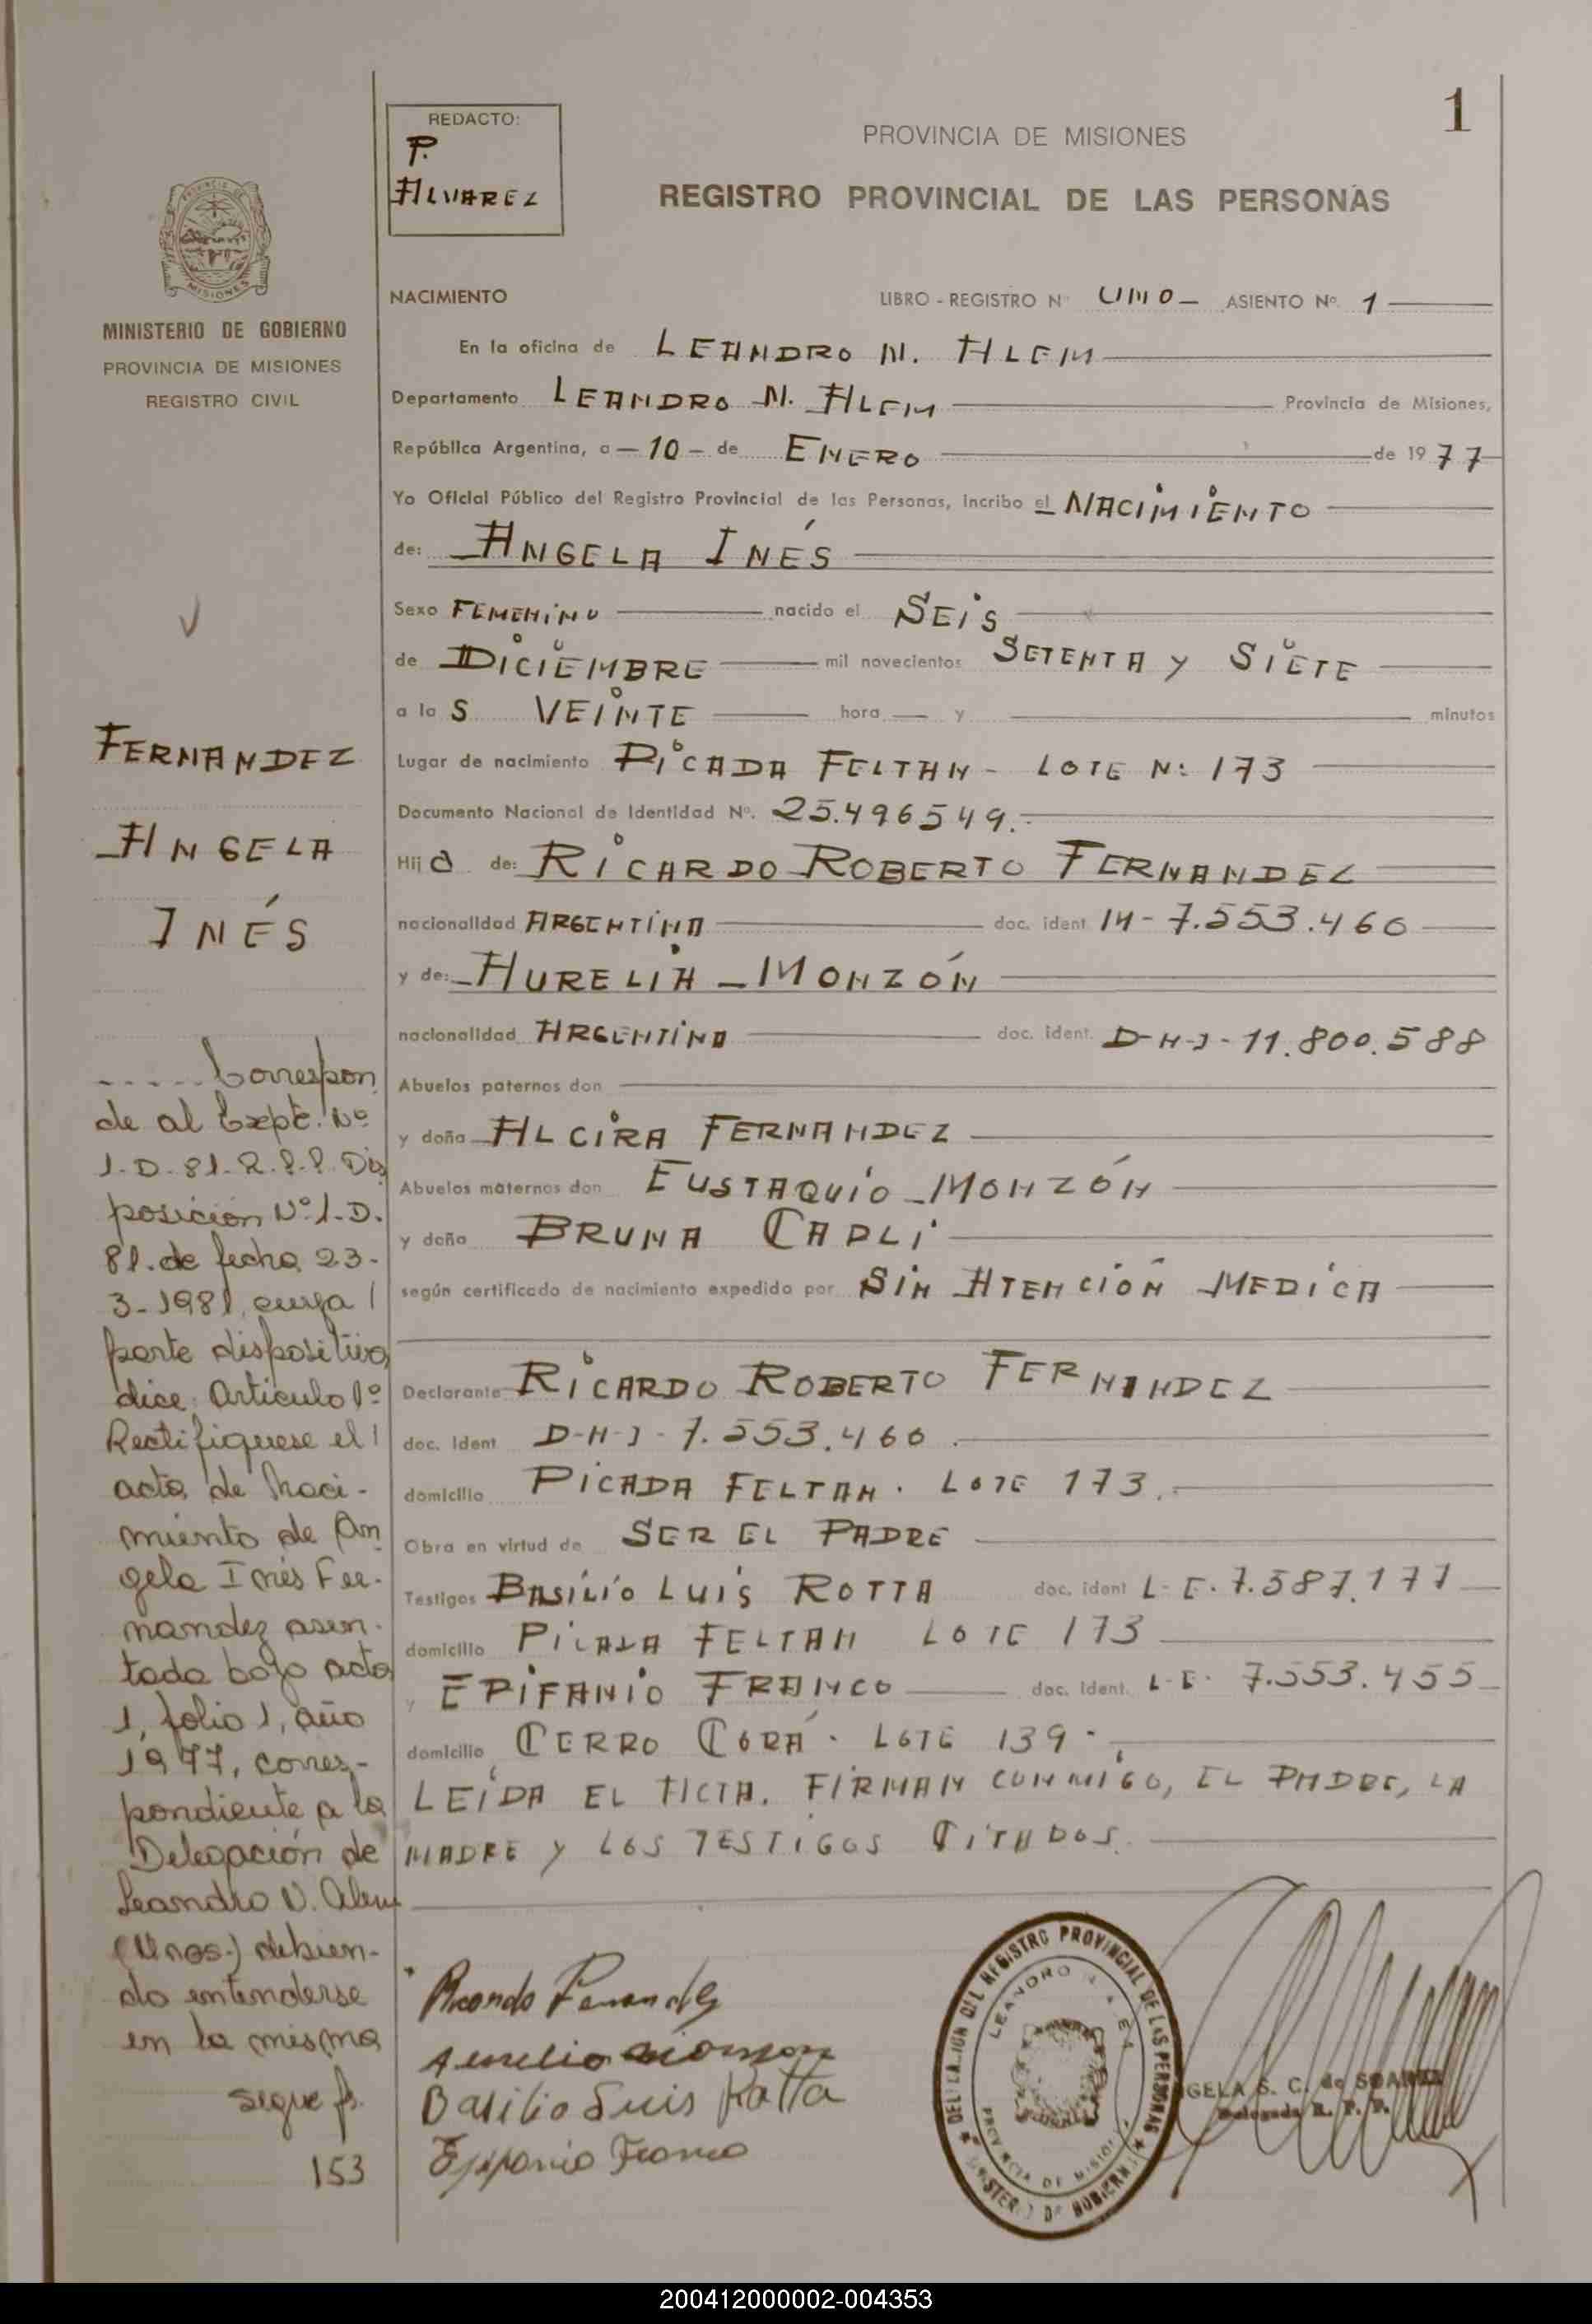 1
REDACTO:
P.
ALVAREZ
PROVINCIA DE MISIONES
REGISTRO PROVINCIAL DE LAS PERSONAS
MINISTERIO DE GOBIERNO
PROVINCIA DE MISIONES
REGISTRO CIVIL
NACIMIENTO LIBRO - REGISTRO Nº UNO - ASIENTO Nº. 1
En la oficina de LEANDRO N. ALEM
Departamento LEANDRO N. ALEM Provincia de Misiones,
República Argentina, a - 10 - de ENERO de 1977
Yo Oficial Público del Registro Provincial de las Personas, incribo el NACIMIENTO
de: ANGELA INÉS
Sexo FEMENINO nacido el SEIS
de DICIEMBRE mil novecientos SETENTA Y SIETE
a las VEINTE hora y minutos
Lugar de nacimiento PICADA FELTAN - LOTE N: 173
Documento Nacional de Identidad Nº. 25.496549.
Hija de: RICARDO ROBERTO FERNANDEZ
nacionalidad ARGENTINA doc. ident M - 7.553.460
y de: AURELIA - MONZÓN
nacionalidad ARGENTINA doc. ident. D-N-I - 11.800.588
Abuelos paternos don
y doña ALCIRA FERNANDEZ
Abuelos maternos don EUSTAQUIO - MONZÓN
y doña BRUNA
según certificado de nacimiento expedido por SIN ATENCIÓN MEDICA
Declarante RICARDO ROBERTO FERNANDEZ
doc. ident D-N-I - 7.553.460.
domicilio PICADA FELTAN. LOTE 173.
Obra en virtud de SER EL PADRE
Testigos BASILIO LUIS ROTTA doc. ident L-E. 7.587.177
domicilio PICADA FELTAN LOTE 173
y EPIFANIO FRANCO doc. ident. L-E. 7.553.455
domicilio CERRO CORÁ. LOTE 139 -
LEIDA EL ACTA. FIRMAN CONMIGO, EL PADRE, LA
MADRE Y LOS TESTIGOS CITADOS.
FERNANDEZ
ANGELA
INÉS
..... Correspon
de al Expte. Nº
1-D-81-R.P.P. Dis
posición Nº 1-D.
81. de fecha 23-
3-1981, cuya
parte dispositiva
dice: Artículo 1º
Rectifiquese el
acta de Naci-
miento de An
gela Inés Fer-
nandez asen-
tada bajo acta
1, folio 1, año
1977, corres-
pondiente a la
Delegación de
Leandro N. Alem
(Mnes.) debien-
do entenderse
en la misma
sigue fs.
153
Ricardo Fernandez
Aurelia Monzon
Basilio Luis Rotta
Epifanio Franco
DELEGACION DEL REGISTRO PROVINCIAL DE LAS PERSONAS
LEANDRO N. ALEM
PROVINCIA DE MISIONES
MINISTERIO DE GOBIERNO
GELA S. C. de
Delegada R. P. P.
200412000002-004353